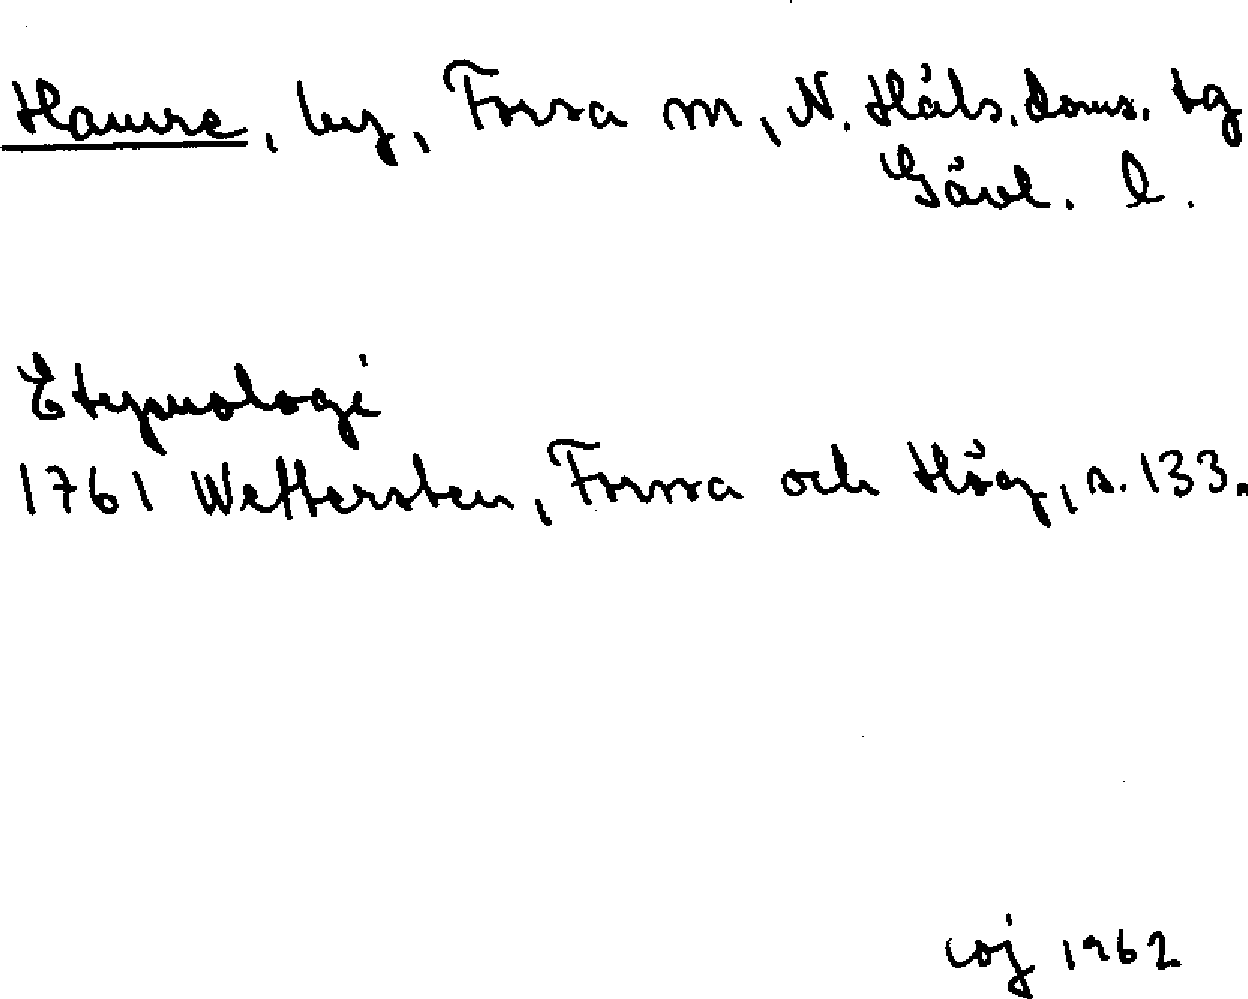 Hamre, by, Forssa sn, N. Häls. doms. tg
Gävl. l.
Etymologi
1761 Wettersten, Forssa och Hög, s. 133.
coj 1962